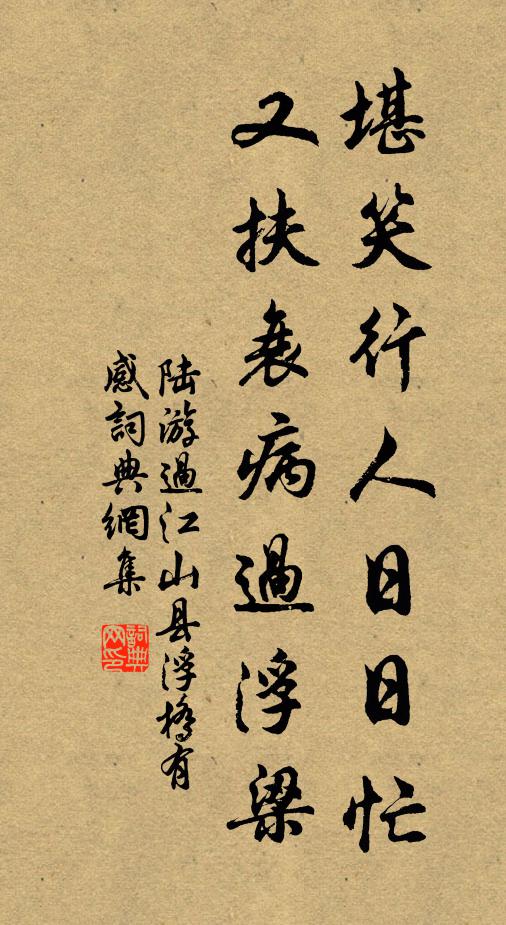 堪笑行人日日忙
又扶衰病過浮梁
陆游過江山县浮橋有
感詞典網集
詞典网印